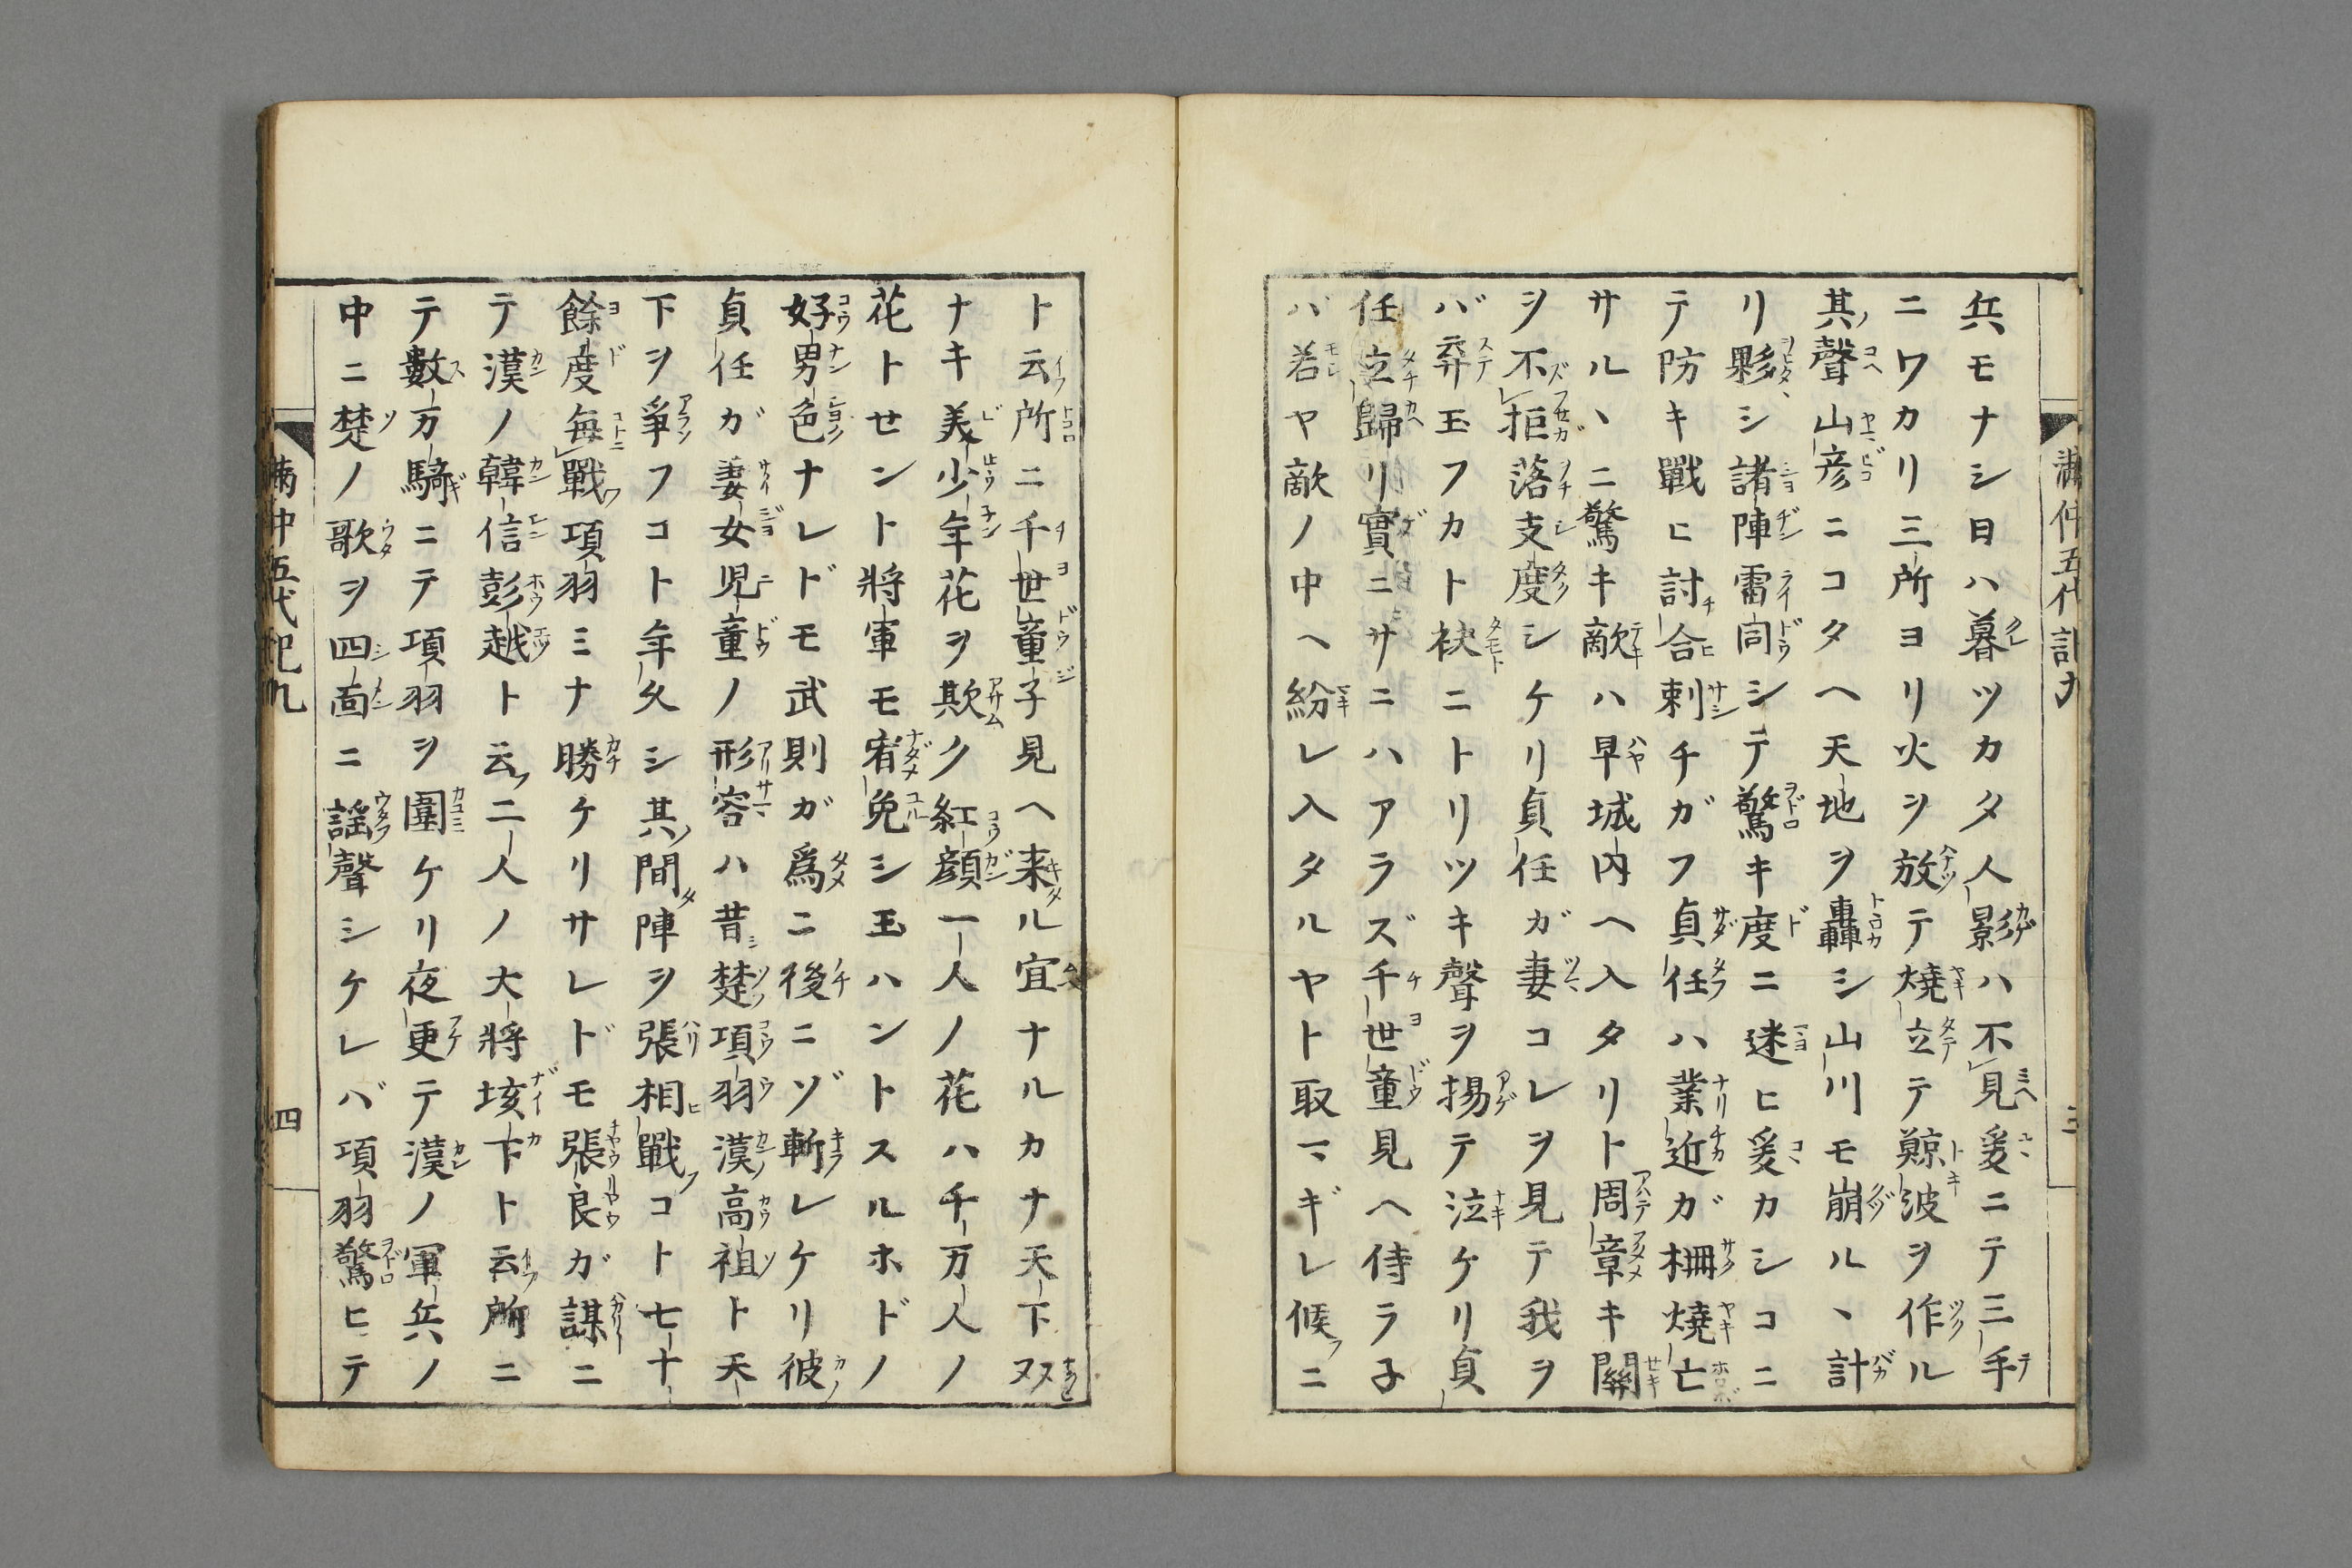 兵モナシ日ハ暮ツカタ人影ハ不見爰ニテ三手
ニワカリ三所ヨリ火ヲ放テ燒立テ鯨波ヲ作ル
其聲山彦ニコタヘ天地ヲ轟シ山川モ崩ル丶計
リ夥シ諸陣雷同シテ驚キ度ニ迷ヒ爰カシコニ
テ防キ戰ヒ討合刺チガフ貞任ハ業近ガ柵燒亡
サル丶ニ驚キ敵ハ早城内ヘ入タリト周章キ關
ヲ不拒落支度シケリ貞任ガ妻コレヲ見テ我ヲ
バ弃玉フカト袂ニトリツキ聲ヲ揚テ泣ケリ貞
任立歸リ實ニサニハアラズ千世童見ヘ侍ラ子
バ若ヤ敵ノ中ヘ紛レ入タルヤト取マギレ候ニ
ト云所ニ千世童子見ヘ来ル宜ナルカナ天下双
ナキ美少年花ヲ欺ク紅顔一人ノ花ハ千万人ノ
花トセント將軍モ宥免シ玉ハントスルホドノ
好男色ナレドモ武則ガ爲ニ後ニゾ斬レケリ彼
貞任ガ妻女児童ノ形容ハ昔楚項羽漢高祖ト天
下ヲ爭フコト年久シ其間陣ヲ張相戰コト七十
餘度毎戰項羽ミナ勝ケリサレドモ張良ガ謀ニ
テ漢ノ韓信彭越ト云二人ノ大將垓下ト云所ニ
テ數万騎ニテ項羽ヲ圍ケリ夜更テ漢ノ軍兵ノ
中ニ楚ノ歌ヲ四面ニ謡聲シケレバ項羽驚ヒテ
四